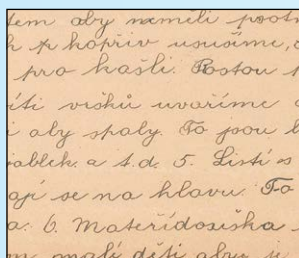 tem aby neměli
k kopřiv usušíme,
pro kašli. Rostou
víti višků uvaříme
i aby spaly. To jsou
jablek. a t.d. 5. Listí
ají se na hlavu. To
a: 6. Mateřídouška
malí děti aby